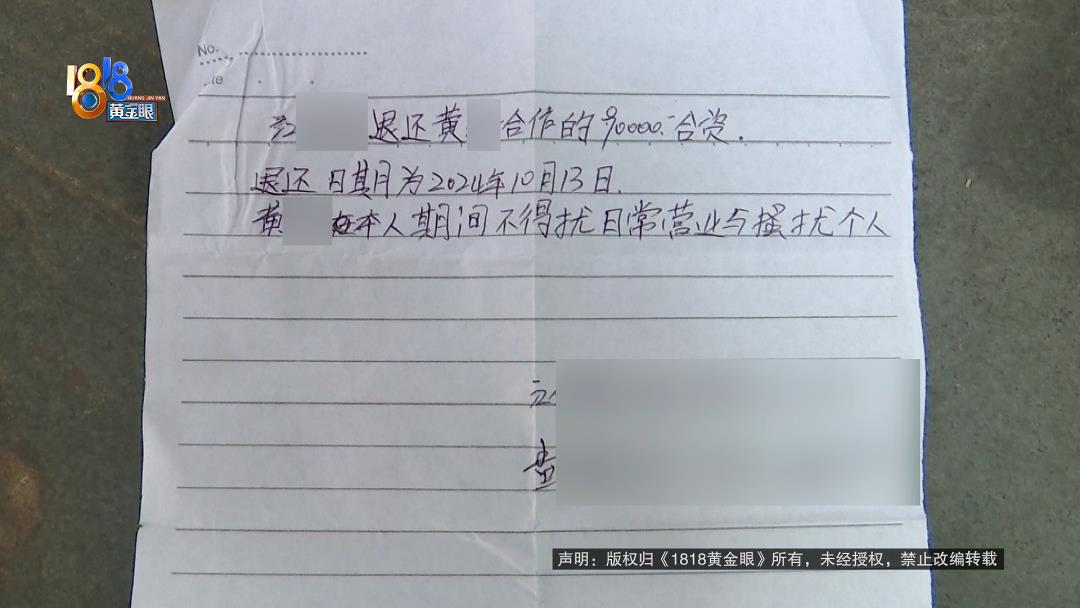 1818
HUANG JIN YAN
黄金眼
No.
退还黄 合作的90000.-合资.
退还日期为2024年10月13日.
黄 在本人期间不得扰日常营业与搔扰个人
声明：版权归《1818黄金眼》所有，未经授权，禁止改编转载